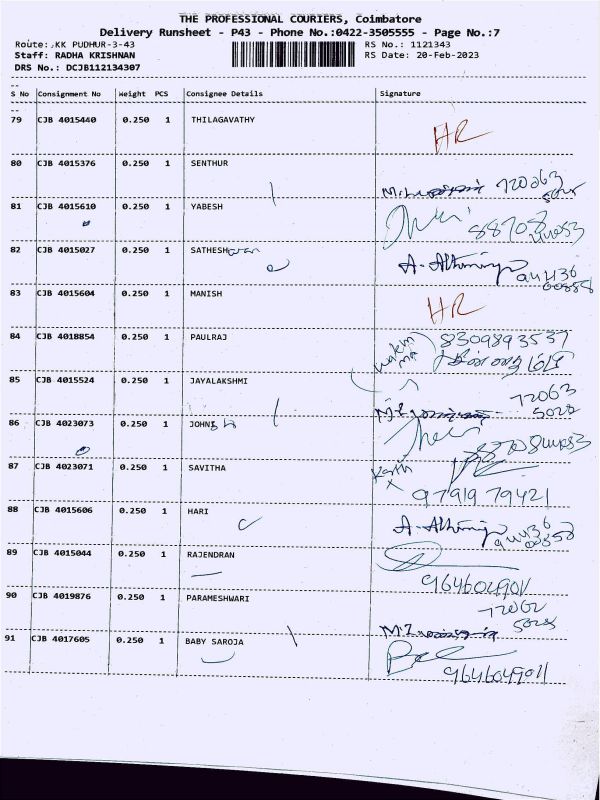 THE PROFESSIONAL COURIERS, Coimbatore
Delivery Runsheet - P43 - Phone No.:0422-3505555 - Page No.:7
Route: KK PUDHUR-3-43 RS No.: 1121343
Staff: RADHA KRISHNAN RS Date: 20-Feb-2023
DRS No.: DCJB112134307
S No Consignment No Weight PCS Consignee Details Signature
79 CJB 4015440 0.250 1 THILAGAVATHY
HR
80 CJB 4015376 0.250 1 SENTHUR
720063
81 CJB 4015610 0.250 1 YABESH
88708
82 CJB 4015027 0.250 1 SATHESH
83 CJB 4015604 0.250 1 MANISH
HR
84 CJB 4018854 0.250 1 PAULRAJ
8309893537
85 CJB 4015524 0.250 1 JAYALAKSHMI
72063
5028
86 CJB 4023073 0.250 1 JOHN
87 CJB 4023071 0.250 1 SAVITHA
97919 79421
88 CJB 4015606 0.250 1 HARI
89 CJB 4015044 0.250 1 RAJENDRAN
9646049011
90 CJB 4019876 0.250 1 PARAMESHWARI
5028
91 CJB 4017605 0.250 1 BABY SAROJA
9646049011